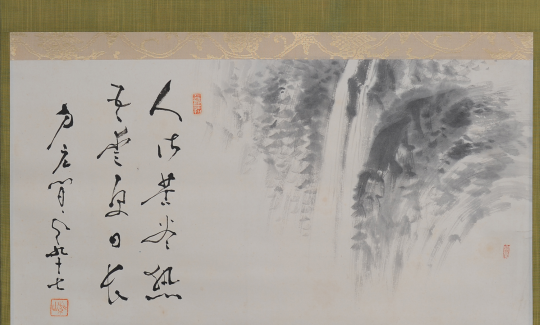 人皆苦炎熱
吾愛夏日長
方広 九十七